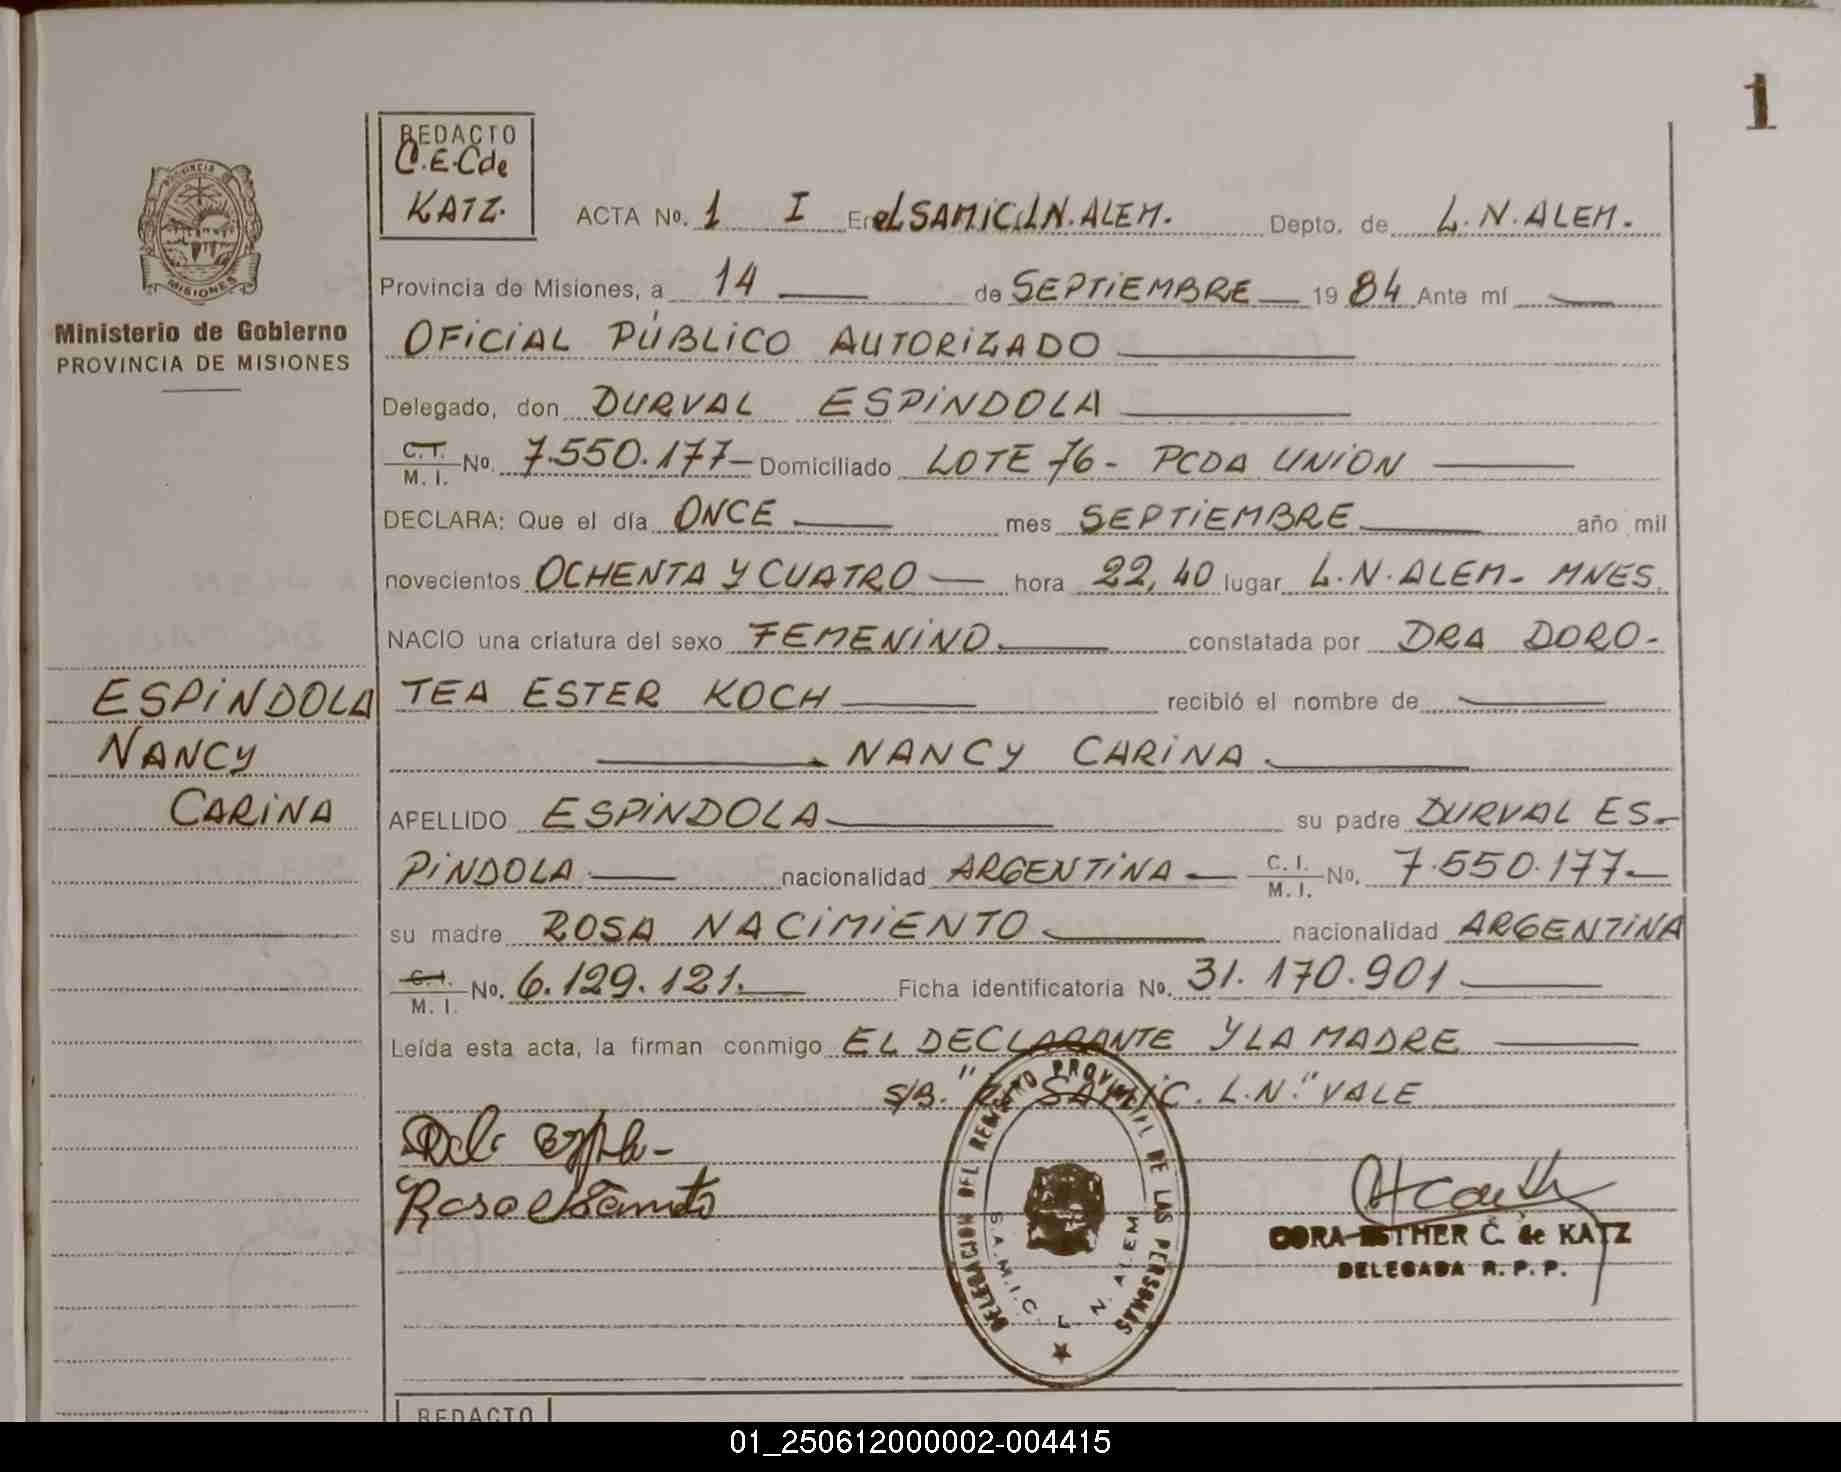 1
REDACTO
C.E.C de
KATZ.
PROVINCIA
MISIONES
Ministerio de Gobierno
PROVINCIA DE MISIONES
ACTA No. 1 I En el SAMIC. L.N. ALEM. Depto. de L. N. ALEM.
Provincia de Misiones, a 14 de SEPTIEMBRE 19 84 Ante mí
OFICIAL PÚBLICO AUTORIZADO
Delegado, don DURVAL ESPINDOLA
C. I. M. I. No. 7.550.177- Domiciliado LOTE 76 - PCDA UNION
DECLARA: Que el día ONCE mes SEPTIEMBRE año mil
novecientos OCHENTA Y CUATRO hora 22,40 lugar L.N. ALEM- MNES.
NACIO una criatura del sexo FEMENINO constatada por DRA DORO-
TEA ESTER KOCH recibió el nombre de
NANCY CARINA
APELLIDO ESPINDOLA su padre DURVAL ES-
PINDOLA nacionalidad ARGENTINA C. I. M. I. No. 7.550.177-
su madre ROSA NACIMIENTO nacionalidad ARGENTINA
C. I. M. I. No. 6.129.121. Ficha identificatoria No. 31.170.901
Leída esta acta, la firman conmigo EL DECLARANTE Y LA MADRE
S/B. "EL SAMIC. L.N." VALE
ESPINDOLA
NANCY
CARINA
DELEGACION DEL REGISTRO PROVINCIAL DE LAS PERSONAS
S.A.M.I.C. L. N. ALEM
CORA ESTHER C. de KATZ
DELEGADA R. P. P.
REDACTO
01_250612000002-004415